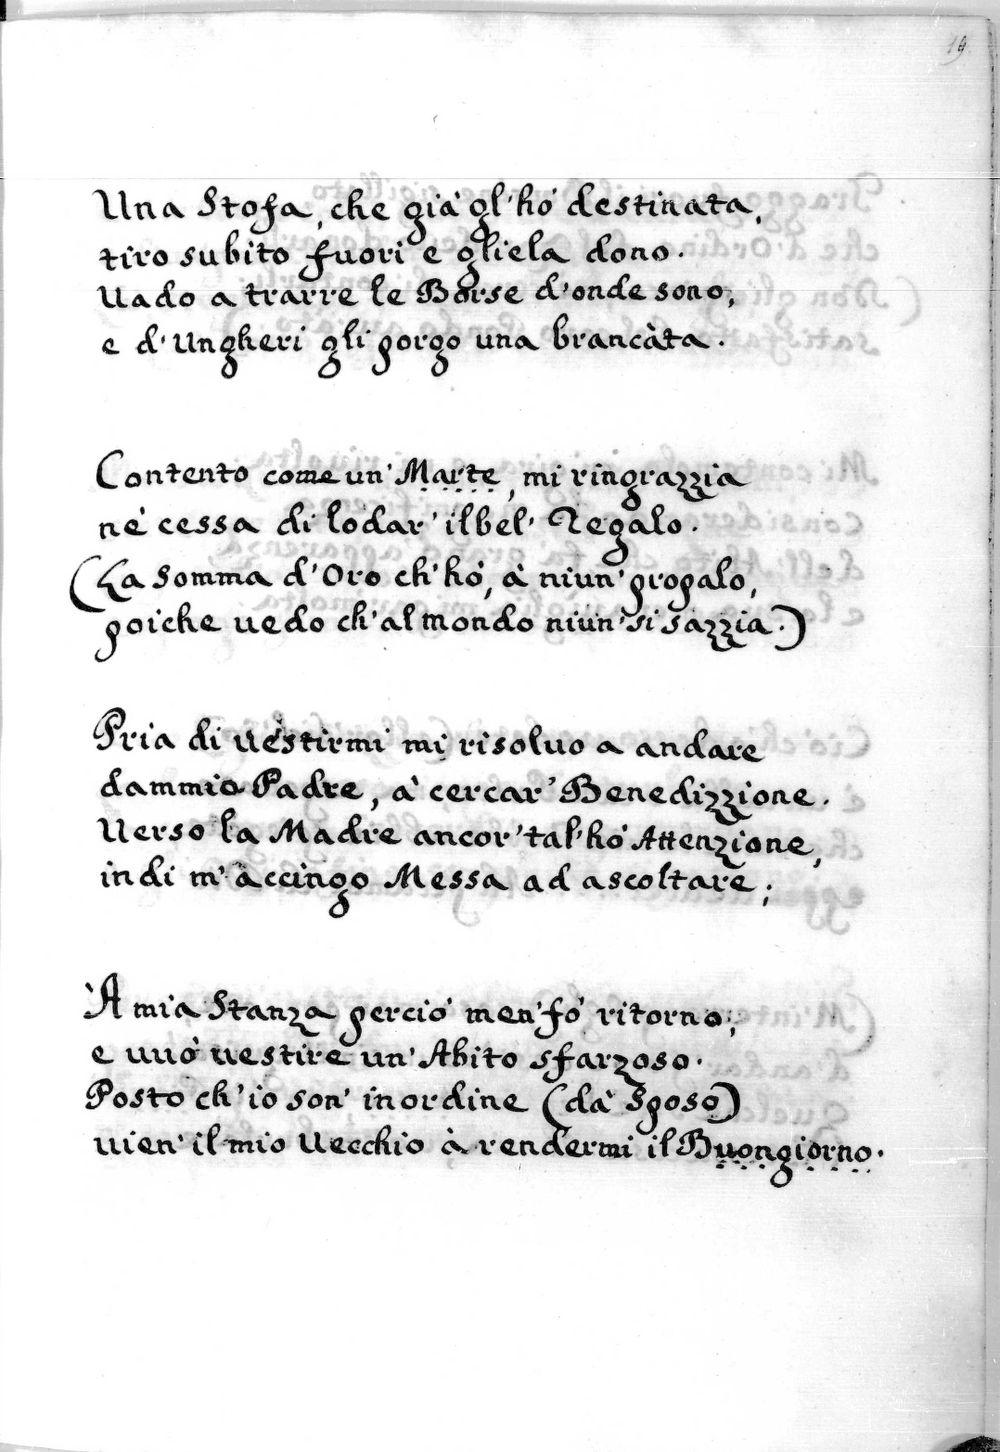 19.
Una Stofa, che già gl'hó destinata,
tiro subito fuori e gliela dono.
Vado a trarre le Borse d'onde sono,
e d'Ungheri gli porgo una brancàta.
Contento come un' Marte, mi ringrazzia
nè cessa di lodar' il bel' Regalo.
(La Somma d'Oro ch'hó, à niun' propalo,
poiche vedo ch'al mondo niun' si sazzia.)
Pria di vestirmi mi risolvo a andare
dammio Padre, à cercar' Benedizzione.
Verso la Madre ancor' tal'hó Attenzione,
indi m'accingo Messa ad ascoltare;
À mia Stanza perció men'fó ritorno,
e vuó vestire un' Abito sfarzoso.
Posto ch'io son' in ordine (dà Sposo)
vien' il mio Vecchio à rendermi il Buongiorno.